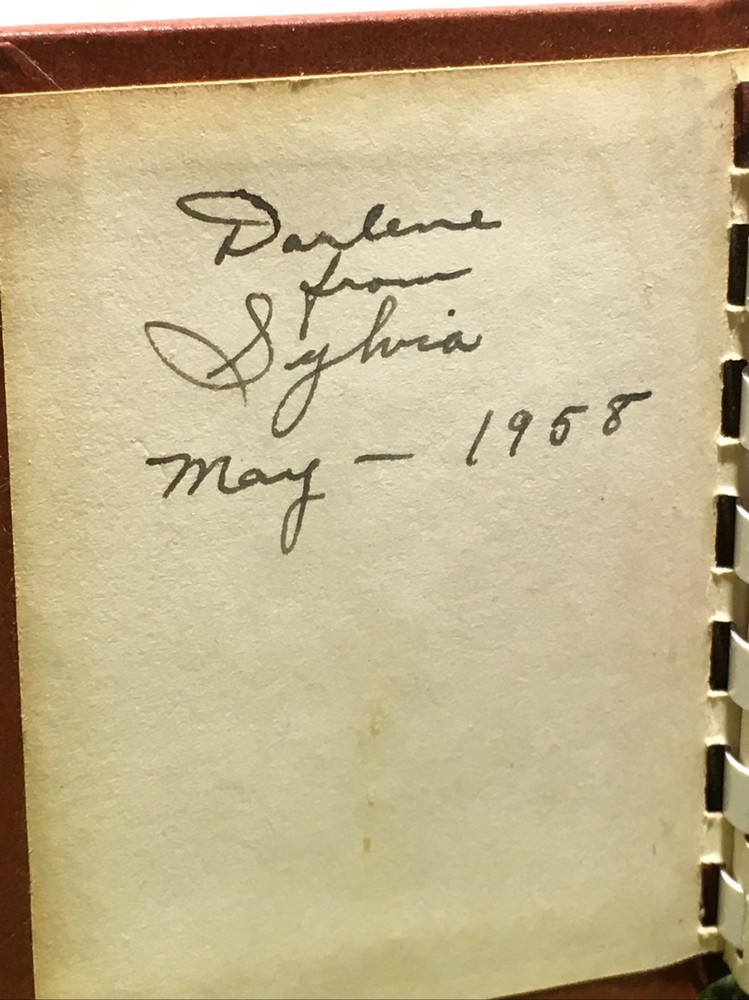 Darlene
from
Sylvia
May - 1958